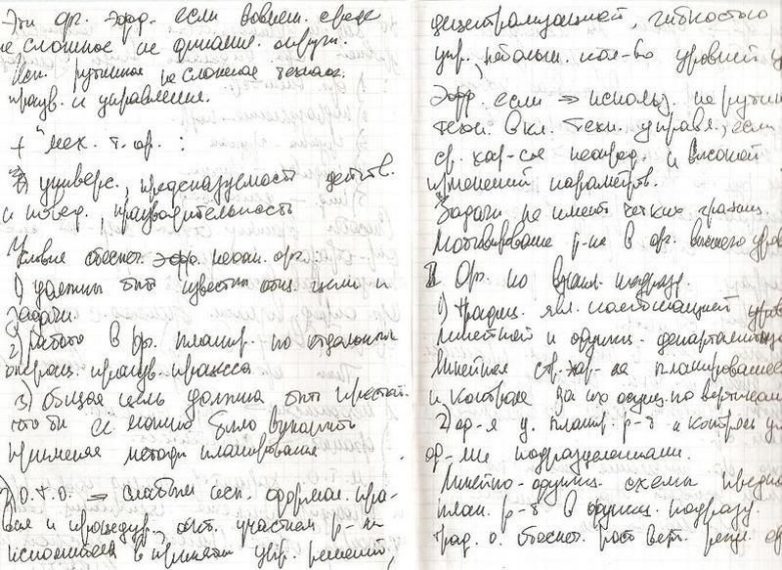 Эти орг. эфф. если во внеш. среде
не сложное не динамич. окруж.
Исп. рутинное не сложное технол.
произв. и управления.
+ "мех. т. ор. :
универс., предсказуемость действ.
и повед., производительность
Условия обеспеч. эфф. механ. орг.:
1) должны быть известны общ. цели и
задачи
2) работа в ор. планир. по отдельным
операц. произв. процесса
3) общая цель должна быть простой
что бы ее можно было выполнить
применяя методы планирования
О.Т.О. => слабым исп. формал. пра-
вил и процедур,
исполнителей в принятии упр. решений,
децентрализацией, гибкостью
упр., небольш. кол-во уровней
Эфф. если => использ. нерутин
техн. вкл. техн. управл., если
ср. хар-ся неопред. и высокой
изменений параметров.
Задачи не имеют четких границ.
мотивирование р-ка в ор. высокого
II Ор. по взаим. подразд.
1) Традиц. явл. комбинацией
линейной и функц. департаментизац
Линейная стр. хар-ся планированием
и контроля за их осущ. по вертикали
2) планир. р-т и контроль
подразделениями.
Линейно-функц. схемы
план. р-т в функц. подразд.
трад. о. обеспеч. рост